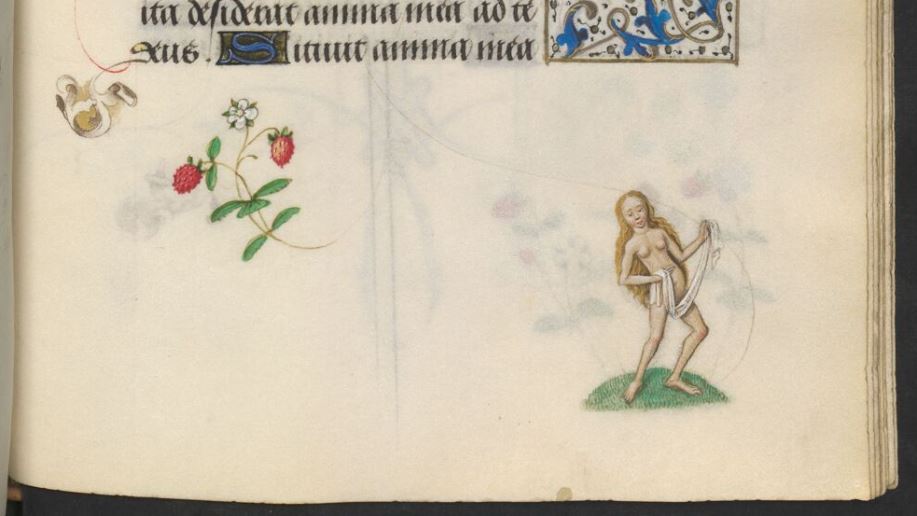 ita desiderat anima mea ad te
deus. Sitiuit anima mea